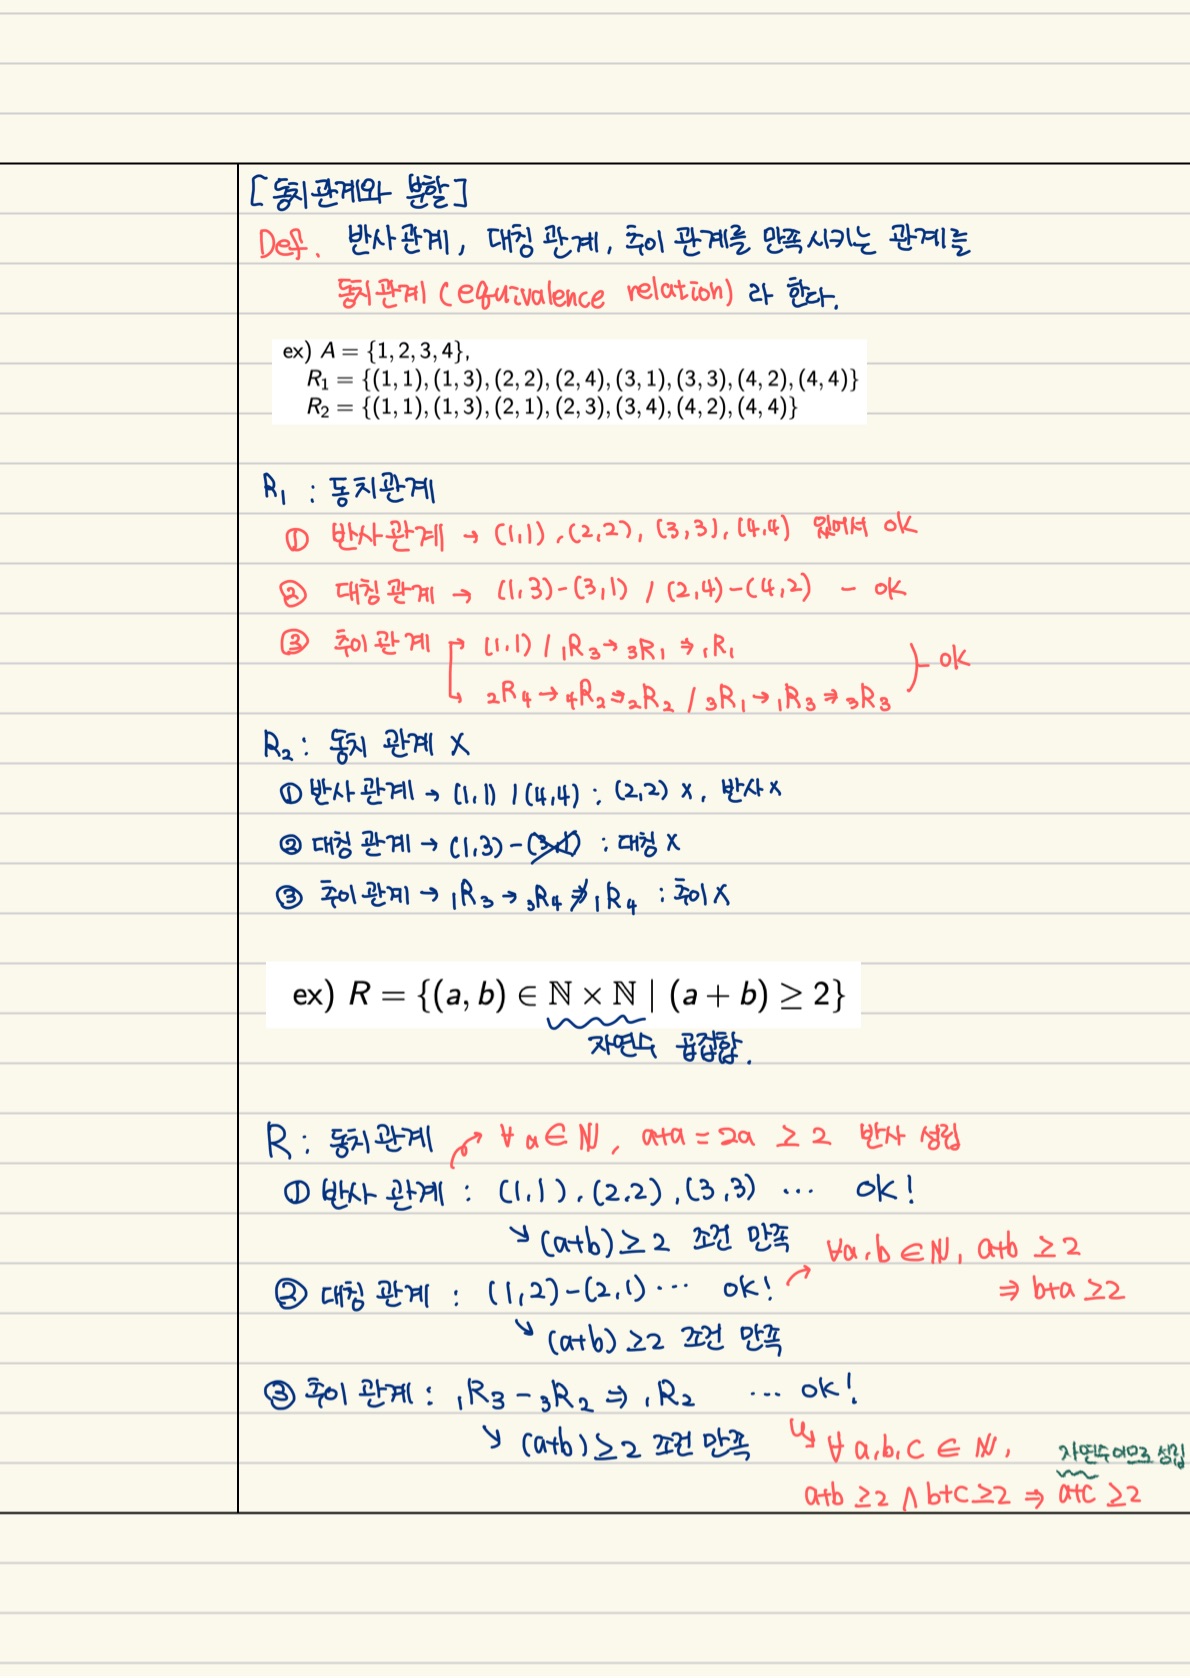 [동치관계와 분할]
Def. 반사관계, 대칭 관계, 추이 관계를 만족시키는 관계를
동치관계 (equivalence relation) 라 한다.
ex) A = {1, 2, 3, 4},
R₁ = {(1, 1), (1, 3), (2, 2), (2, 4), (3, 1), (3, 3), (4, 2), (4, 4)}
R₂ = {(1, 1), (1, 3), (2, 1), (2, 3), (3, 4), (4, 2), (4, 4)}
R₁ : 동치관계
① 반사관계 → (1,1), (2,2), (3,3), (4,4) 있어서 ok
② 대칭관계 → (1,3)-(3,1) / (2,4)-(4,2) - ok
③ 추이관계 → (1,1) / ₁R₃ → ₃R₁ ⇒ ₁R₁
→ ₂R₄ → ₄R₂ ⇒ ₂R₂ / ₃R₁ → ₁R₃ ⇒ ₃R₃ } ok
R₂ : 동치 관계 X
① 반사관계 → (1,1) / (4,4) : (2,2) x, 반사 x
② 대칭 관계 → (1,3) - (3,1) : 대칭 X
③ 추이관계 → ₁R₃ → ₃R₄ ⇏ ₁R₄ : 추이 X
ex) R = {(a, b) ∈ ℕ × ℕ | (a + b) ≥ 2}
자연수 곱집합.
R : 동치관계 ∀a∈ℕ, a+a = 2a ≥ 2 반사 성립
① 반사 관계 : (1,1), (2,2), (3,3) ... ok!
↘ (a+b) ≥ 2 조건 만족
∀a,b ∈ ℕ, a+b ≥ 2
② 대칭 관계 : (1,2)-(2,1) ... ok!
⇒ b+a ≥2
↘ (a+b) ≥2 조건 만족
③ 추이 관계 : ₁R₃ - ₃R₂ ⇒ ₁R₂ ... ok!
↘ (a+b) ≥ 2 조건 만족
↳ ∀ a,b,c ∈ ℕ,
자연수이므로 성립
a+b ≥2 ∧ b+c ≥2 ⇒ a+c ≥2